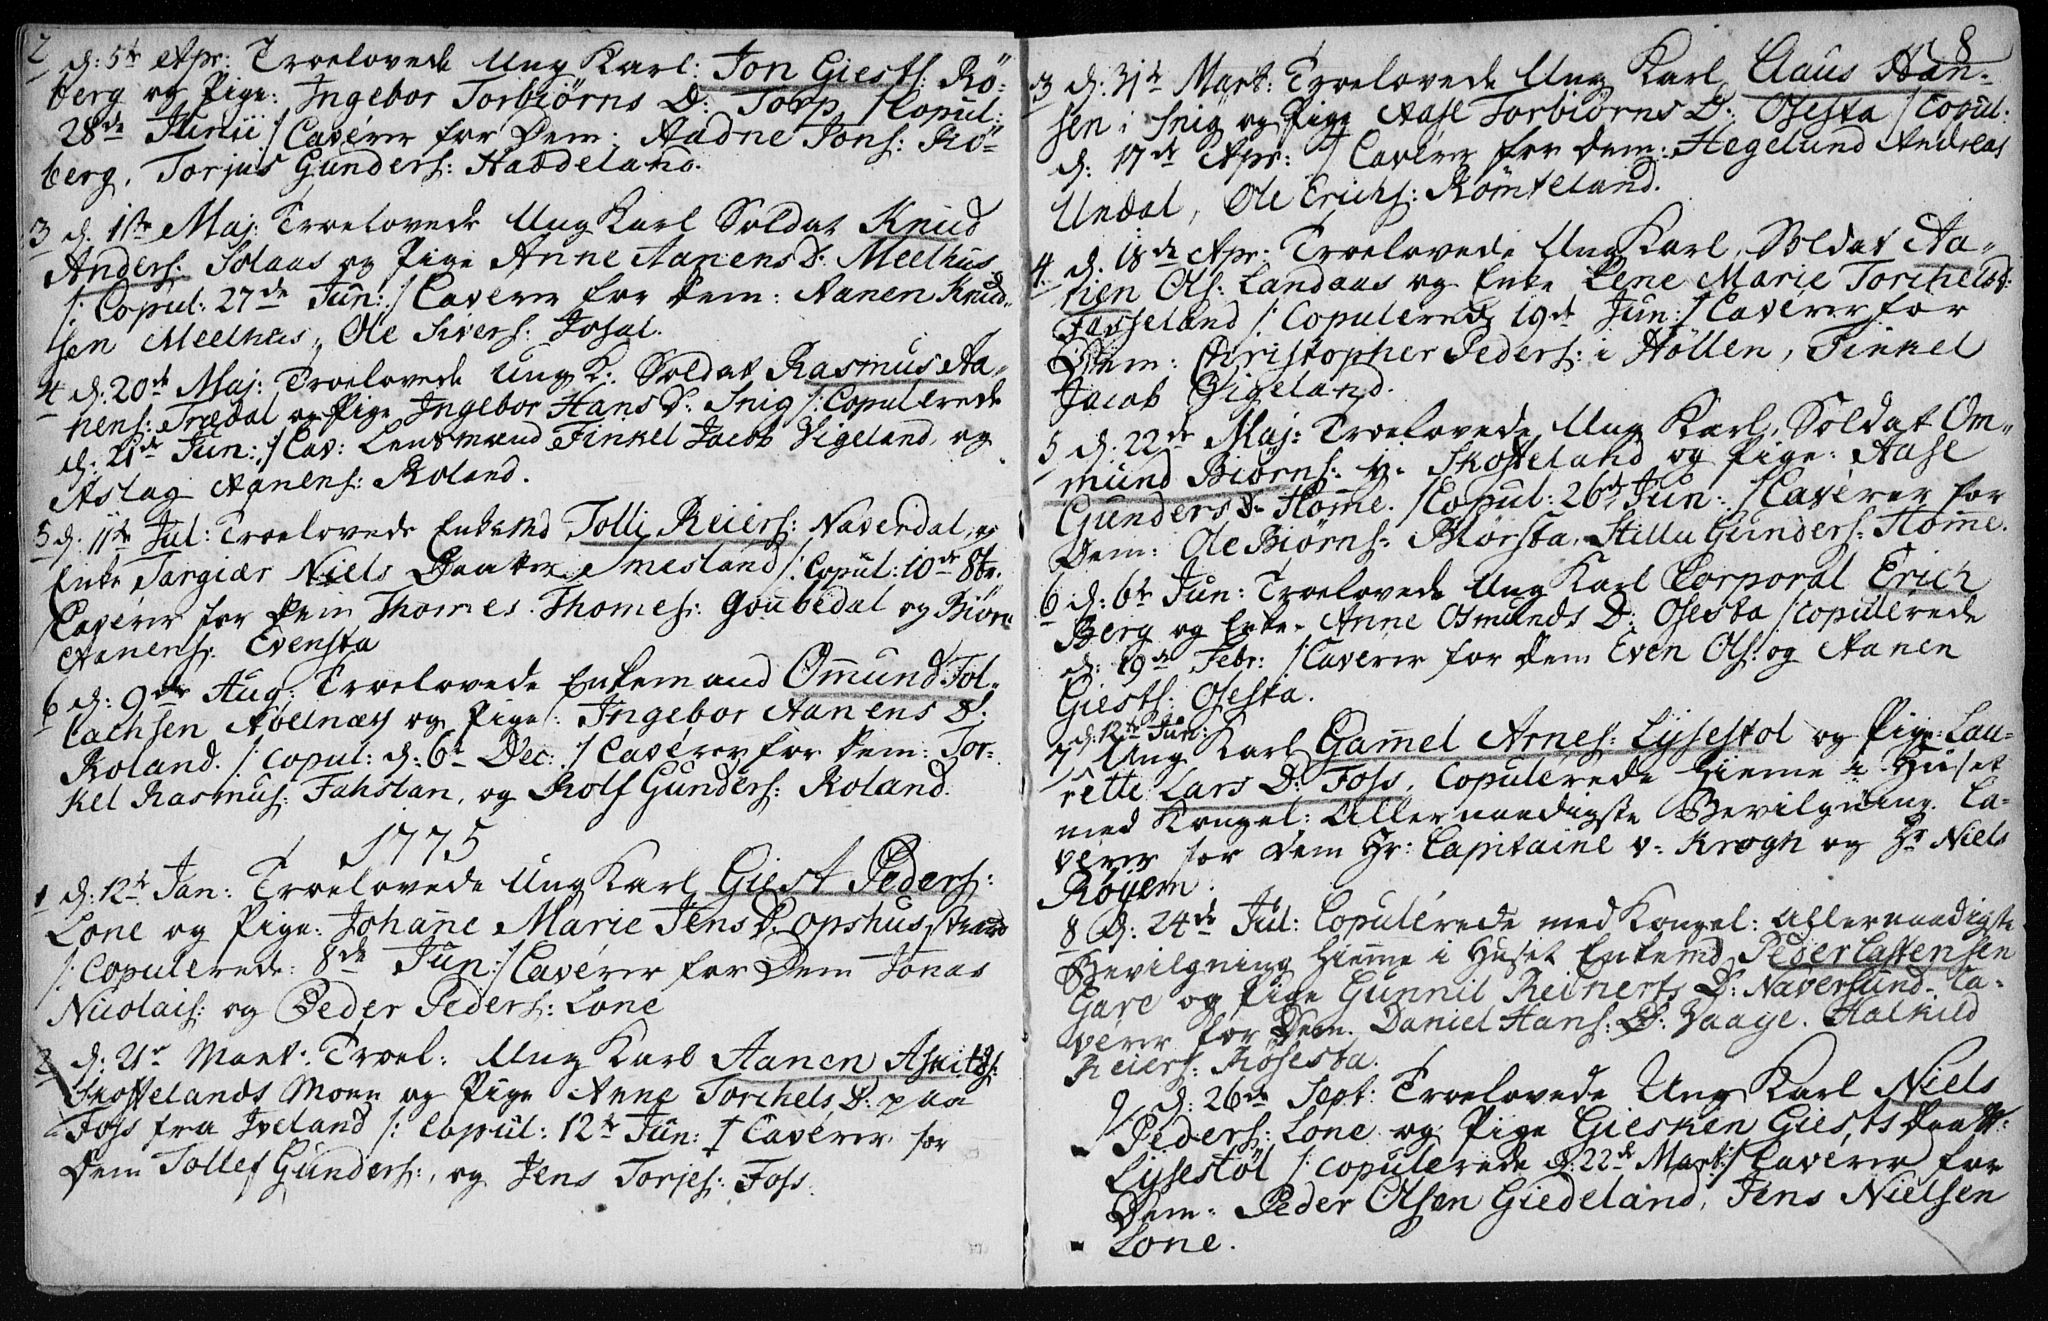 2 d: 5te Apr: Troelovede Ung Karl: Jon Giests: Rö-
berg og Pige: Ingebor Torbiörns D: Torp /: Copul:
28de Junii :/ Caverer for Dem: Aadne Jons: Rö-
berg, Torjus Gunders: Haadeland.
3 d. 1ste Maj: Troelovede Ung Karl Soldat Knud
Anders: Solaas og Pige Anne Aanens D: Meelhus
/: Copul: 27de Jun: :/ Caverer for Dem: Aanen Knud-
sen Meelhus, Ole Sivers: Josal.
4 d: 20de Maj: Troelovede Ung K: Soldat Rasmus Aa-
nens: Trædal og Pige Ingebor Hans D: Snig /: Copulerede
d: 21de Jun: :/ Cav: Lensmand Tinkel Jacob Vigeland, og
Aslag Aanens: Roland.
5 d: 11te Jul: Troelovede Enkemd Tolli Reiers: Naverdal, og
Enke Targiær Niels Daatter Imesland /: Copul: 10de 8br.
Caverer for Dem Thomes Thomes: Goubedal og Biörn
Aanens: Evensta
6 d: 9de Aug: Troelovede Enkemand Omund Fol-
lachsen Aöelnæs og Pige: Ingebor Aanens D:
Roland. /: Copul: d: 6te Dec: :/ Caverer for Dem: Tor-
kel Rasmus: Fahstan, og Rolf Gunders: Roland.
1775
1 d: 12te Jan: Troelovede Ung Karl Giest Peders:
Lone og Pige: Johanne Marie Jens D. Opshus,
/: Copulerede: 8de Jun: :/ Caverer for Dem Jonas
Nicolais: og Peder Peders: Lone
2 d: 21de Mart: Troel: Ung Karl Aanen Asrits:
Skoffelands Moen og Pige Anne Torchels D: paa
Foss fra Iveland /: Copul: 12te Jun: :/ Caverer for
Dem Tollef Gunders:, og Jens Torjes: Foss.
8
3 d: 31te Mart: Troelovede Ung Karl Claus Han-
sen: Snig og Pige Aase Torbiörns D: Osesta /: Copul:
d: 17de Apr: :/ Caverer for Dem: Hegelund Andreas
Undal, Ole Erichs: Römteland.
4. d. 18de Apr: Troelovede Ung Karl, Soldat Aa-
nen Ols: Landaas og Enke Lene Marie Torchels D:
Fasseland /: Copulerede 19de Jun: :/ Caverer for
Dem: Christopher Peders: i Höllen, Tinkel
Jacob Vigeland.
5 d: 22de Maj: Troelovede Ung Karl, Soldat Om-
mund Biörns: y: Skoffeland og Pige: Aase
Gunders D: Home. /: Copul: 26de Jun: :/ Caverer for
Dem: Ole Biörns: Blörsta, Stillu Gunders: Home.
6 d: 6te Jun: Troelovede Ung Karl Corporal Erich
Berg og Enke: Anne Osmunds D: Osesta /: Copulerede
d: 19de Febr: :/ Caverer for Dem Even Ols: og Aanen
Giests: Osesta.
d: 12te Jun:
7 Ung Karl Gamel Arnes: Lysestol og Pige: Lau-
rette Lars D: Foss, Copulerede hieme i Huset
med Kongel: Allernaadigste Bevilgning. Ca-
verer for Dem Hr: Capitaine v: Krogh og Hr Niels
Röyem.
8 d: 24de Jul: Copulerede med Kongel: Allernaadigste
Bevilgning hieme i Huset Enkemd Peder Castensen
Gare og Pige Gunnil Reinerts D: Naversund. Ca-
verer for Dem. Daniel Hans: D: Vaage. Halkild
Reiers: Röisesta.
9 d: 26de Sept: Troelovede Ung Karl Niels
Peders: Lone og Pige Giesken Giests Daatt:
Lysestöl /: Copulerede d: 22de Mart: :/ Caverer for
Dem: Peder Olsen Giedeland, Jens Nielsen
Lone.